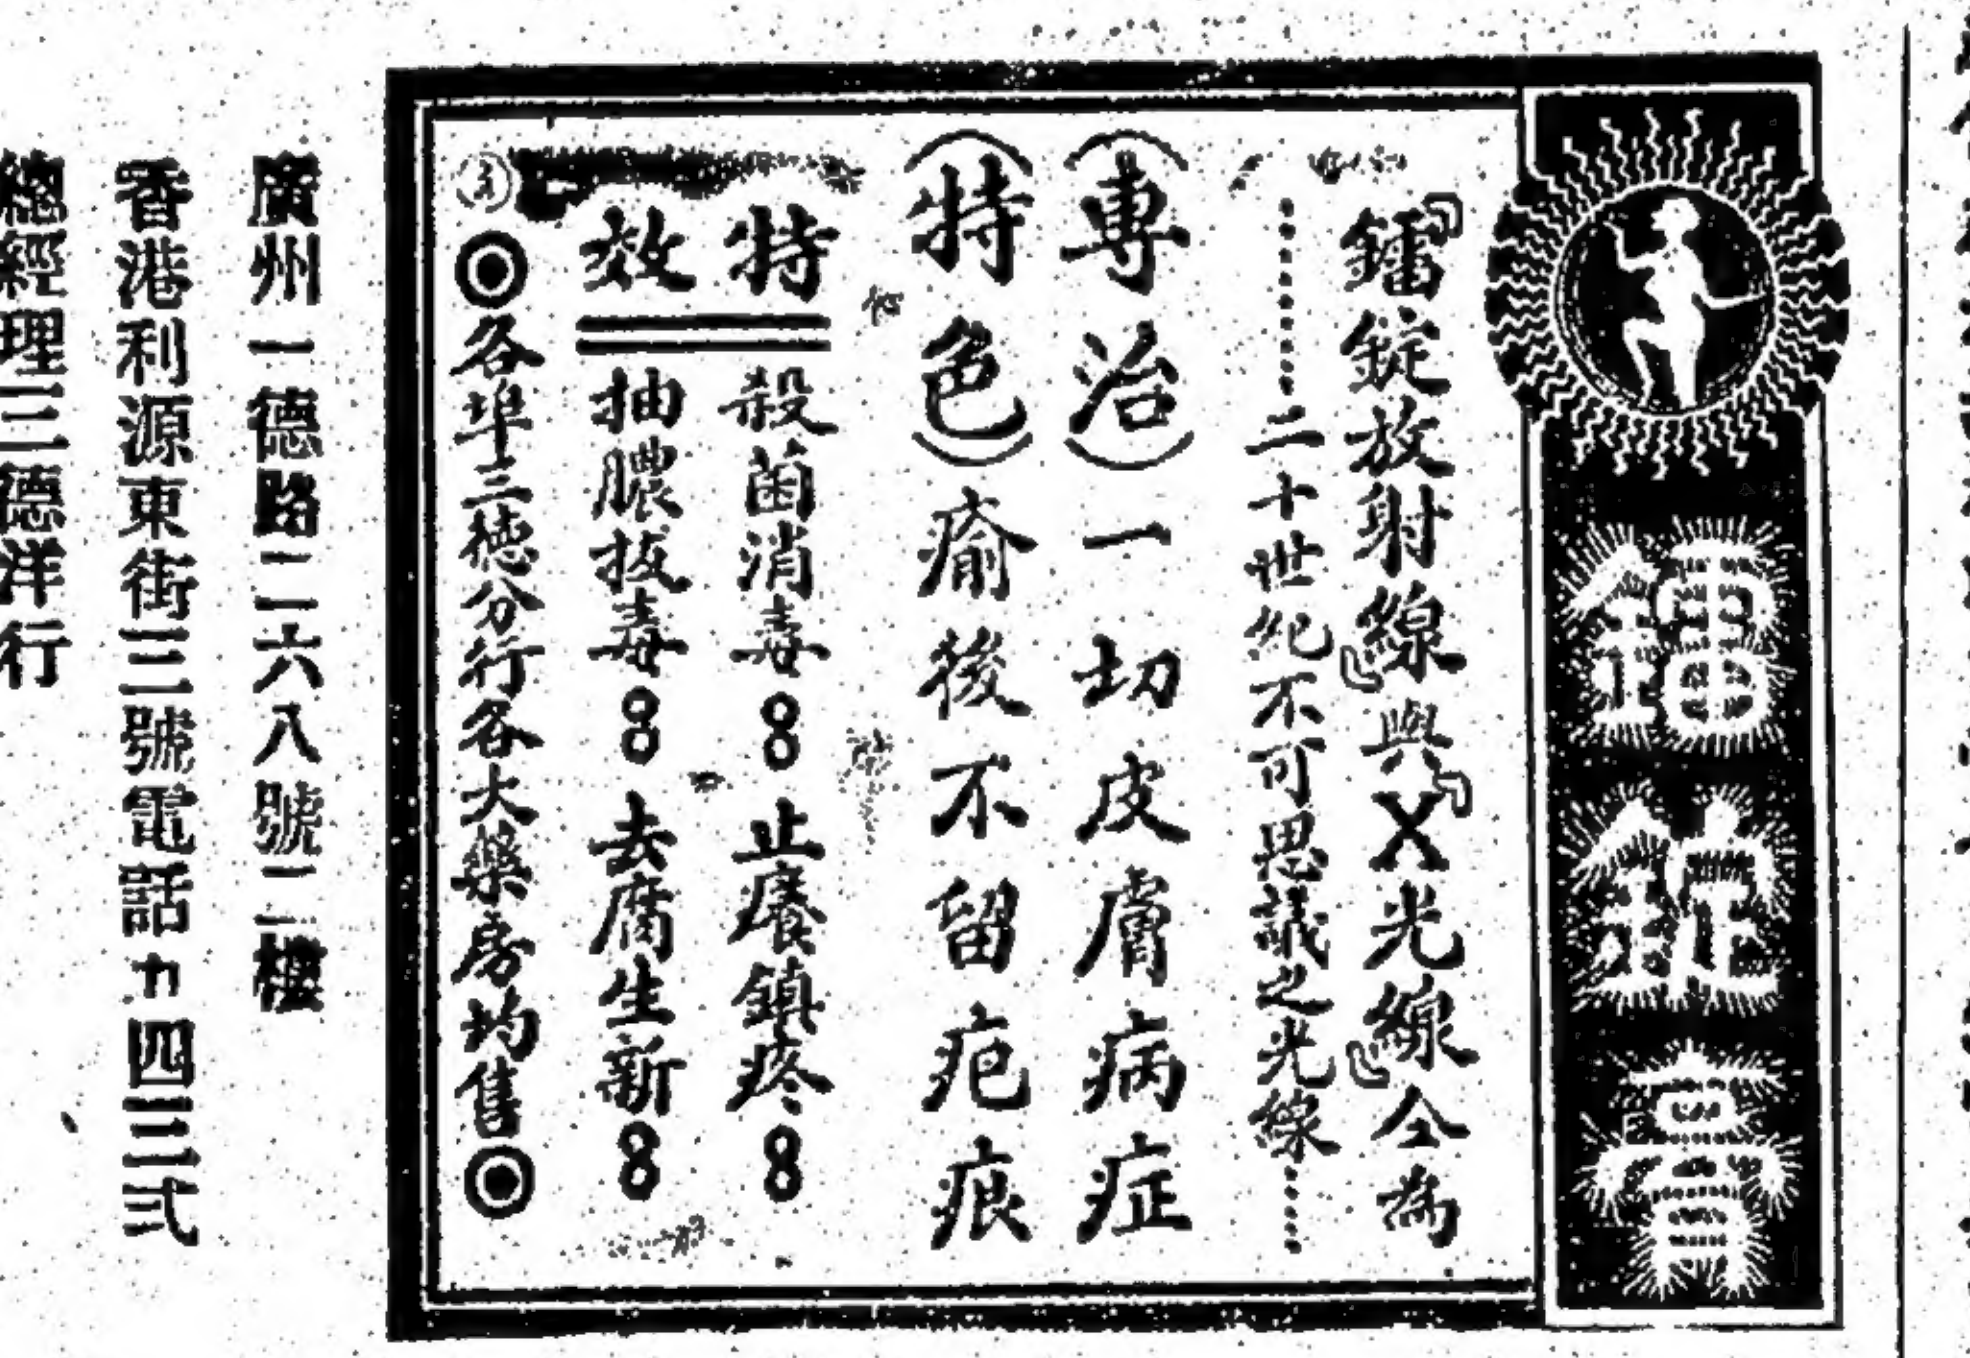 鐳錠膏
「鐳錠放射線」與「X光線」仝為
二十世紀不可思議之光線
(專治)一切皮膚病症
(特色)瘉後不留疤痕
特效
殺菌消毒8止癢鎮疼8
抽膿拔毒8去腐生新8
◎各埠三德分行各大藥房均售◎
廣州一德路二六八號二樓
香港利源東街三號電話四三弍
總經理三德洋行